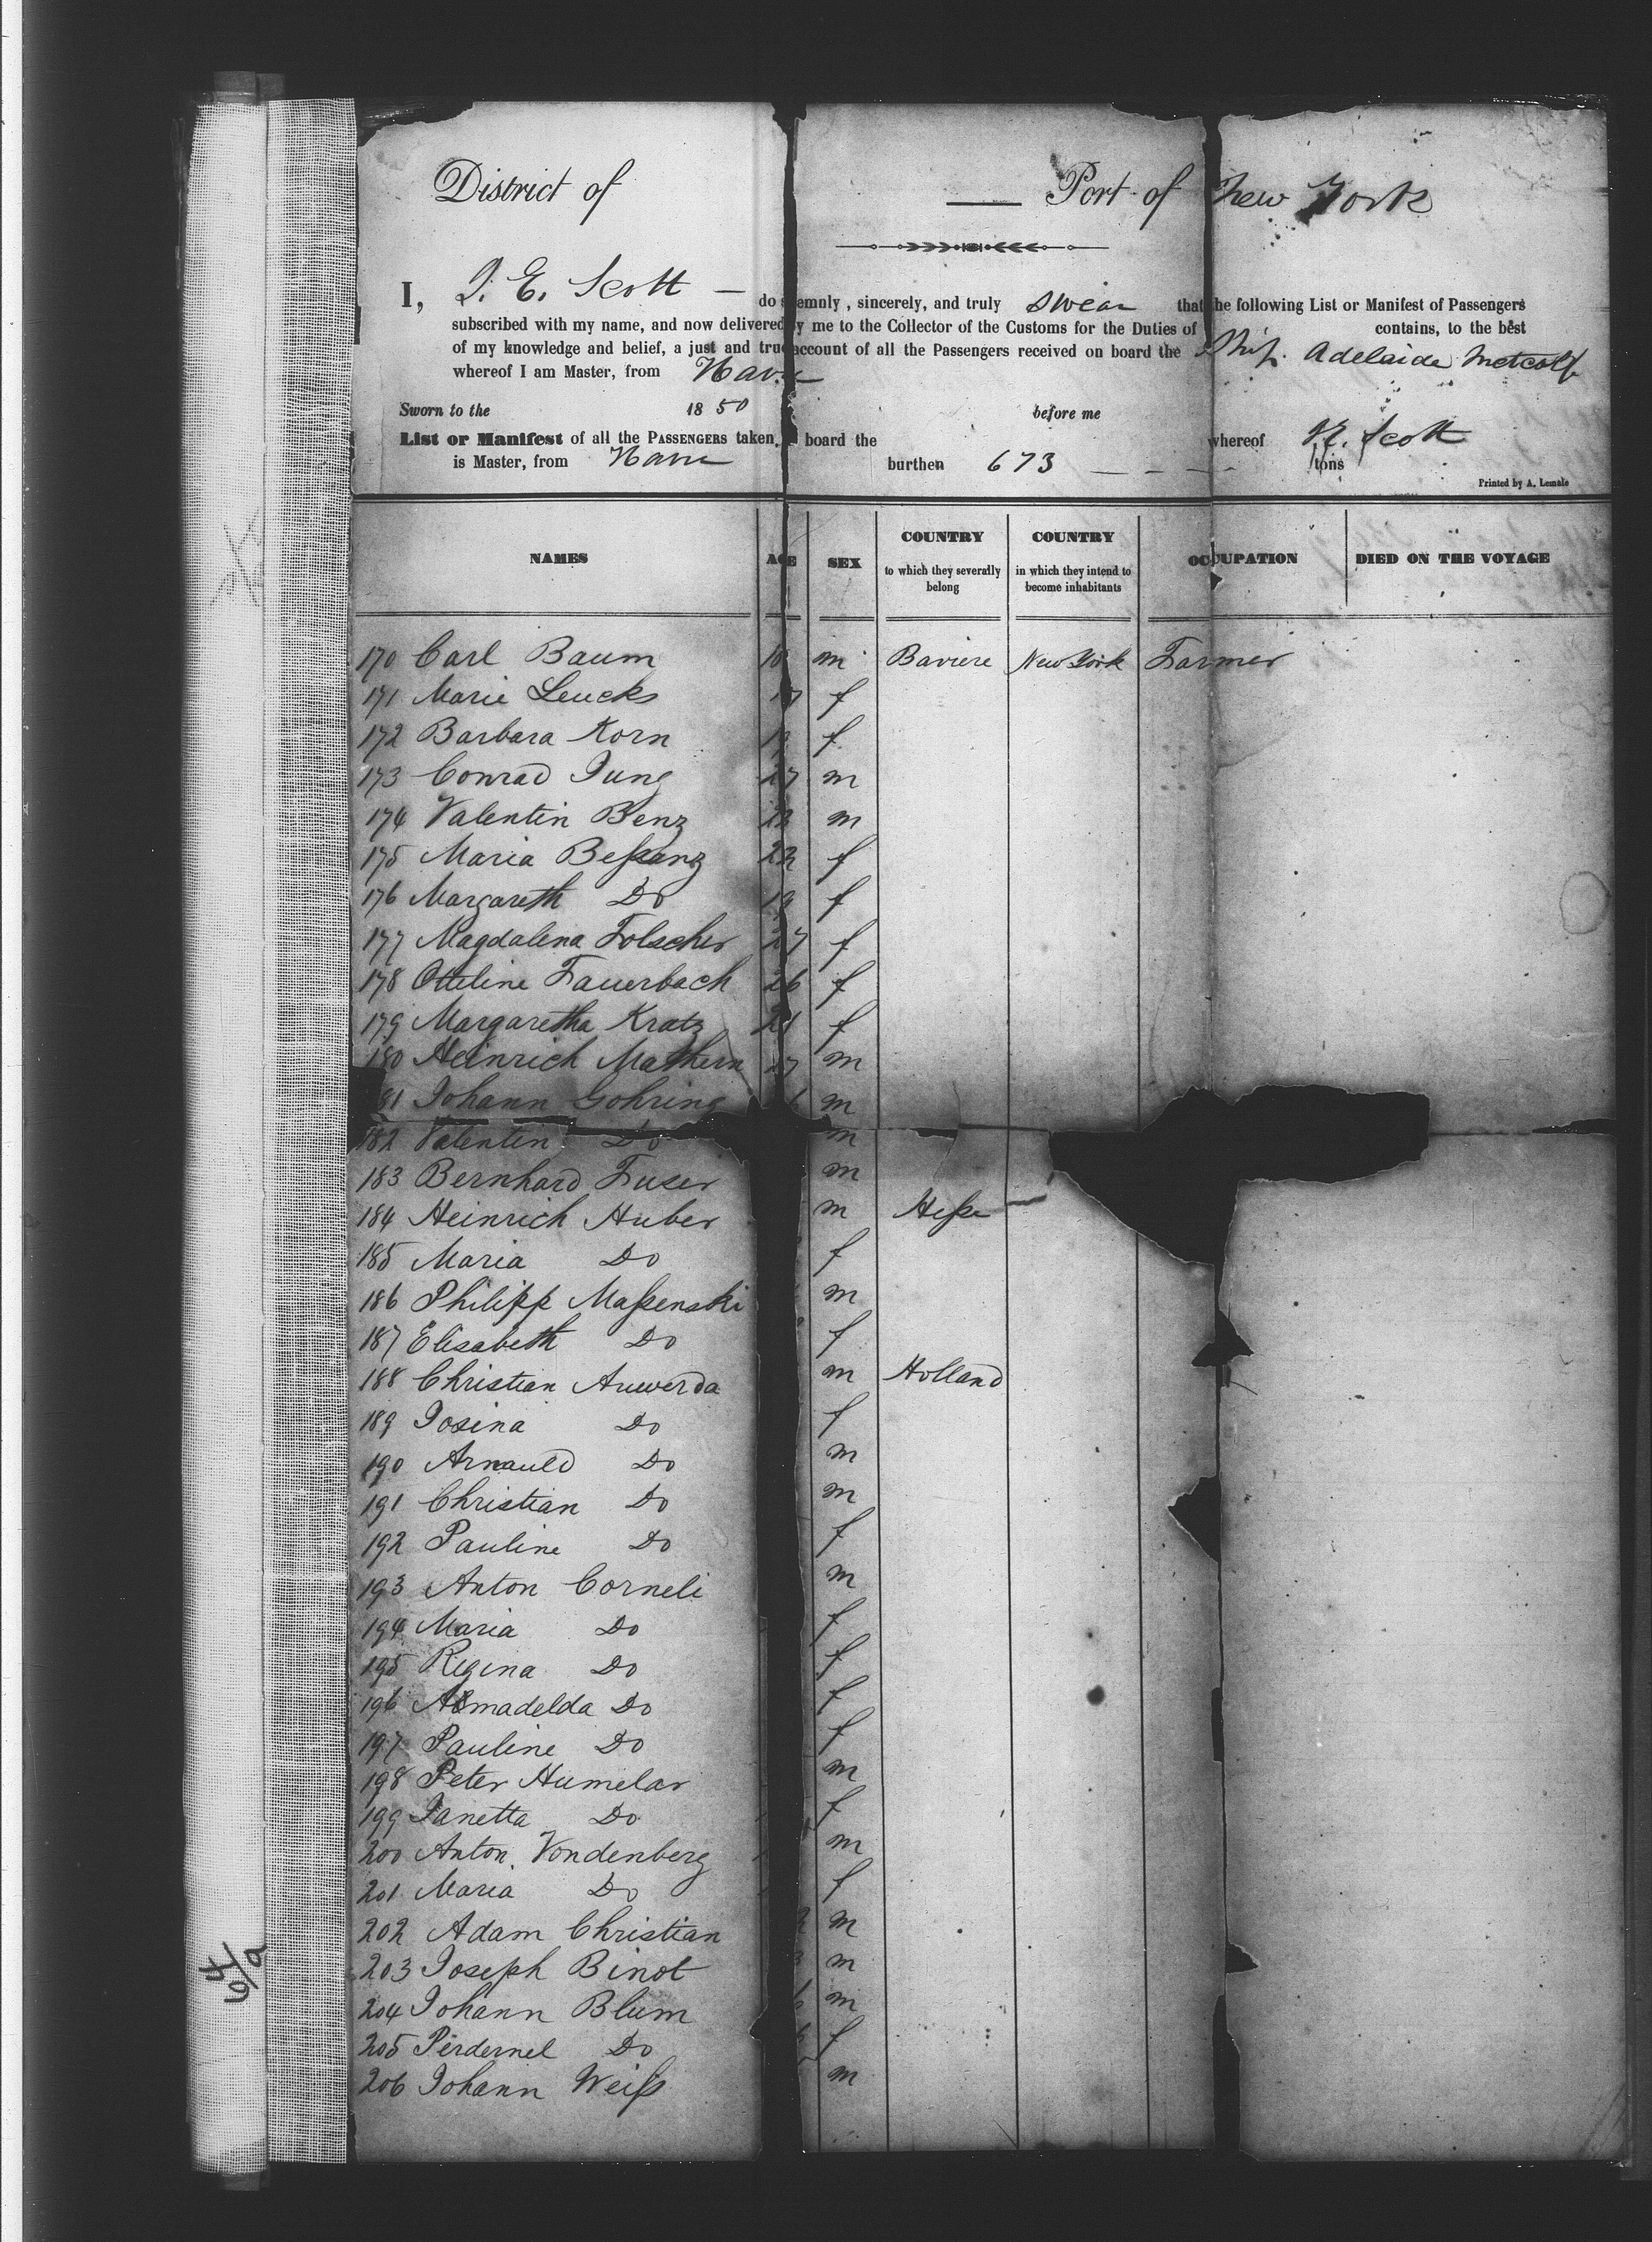 District of — Port of New York
I, J. E. Scott — do solemnly, sincerely, and truly swear that the following List or Manifest of Passengers
subscribed with my name, and now delivered by me to the Collector of the Customs for the Duties of contains, to the best
of my knowledge and belief, a just and true account of all the Passengers received on board the Ship. Adelaide Metcalf
whereof I am Master, from Havre
Sworn to the 1850 before me
List or Manifest of all the PASSENGERS taken board the whereof Scott
is Master, from Havre burthen 673 — — — tons
Printed by A. Lemale
NAMES AGE SEX COUNTRY to which they severally belong COUNTRY in which they intend to become inhabitants OCCUPATION DIED ON THE VOYAGE
170 Carl Baum m Baviere New York Farmer
171 Marie Leucks f
172 Barbara Korn f
173 Conrad Jung 27 m
174 Valentin Benz 23 m
175 Maria Beßanz 22 f
176 Margareth Do 19 f
177 Magdalena Folscher 27 f
178 Otteline Fauerbach 26 f
179 Margaretha Kratz 21 f
180 Heinrich Mathern 27 m
81 Johann Gohring m
182 Valentin Do m
183 Bernhard Fuser m
184 Heinrich Huber m Heße
185 Maria Do f
186 Philipp Maßenski m
187 Elisabeth Do f
188 Christian Auwerda m Holland
189 Josina Do f
190 Arnauld Do m
191 Christian Do m
192 Pauline Do f
193 Anton Corneli m
194 Maria Do f
195 Regina Do f
196 Almadelda Do f
197 Pauline Do f
198 Peter Humelar m
199 Janetta Do f
200 Anton Vondenberg m
201 Maria Do f
202 Adam Christian m
203 Joseph Binot m
204 Johann Blum m
205 Perdernel Do f
206 Johann Weiß m